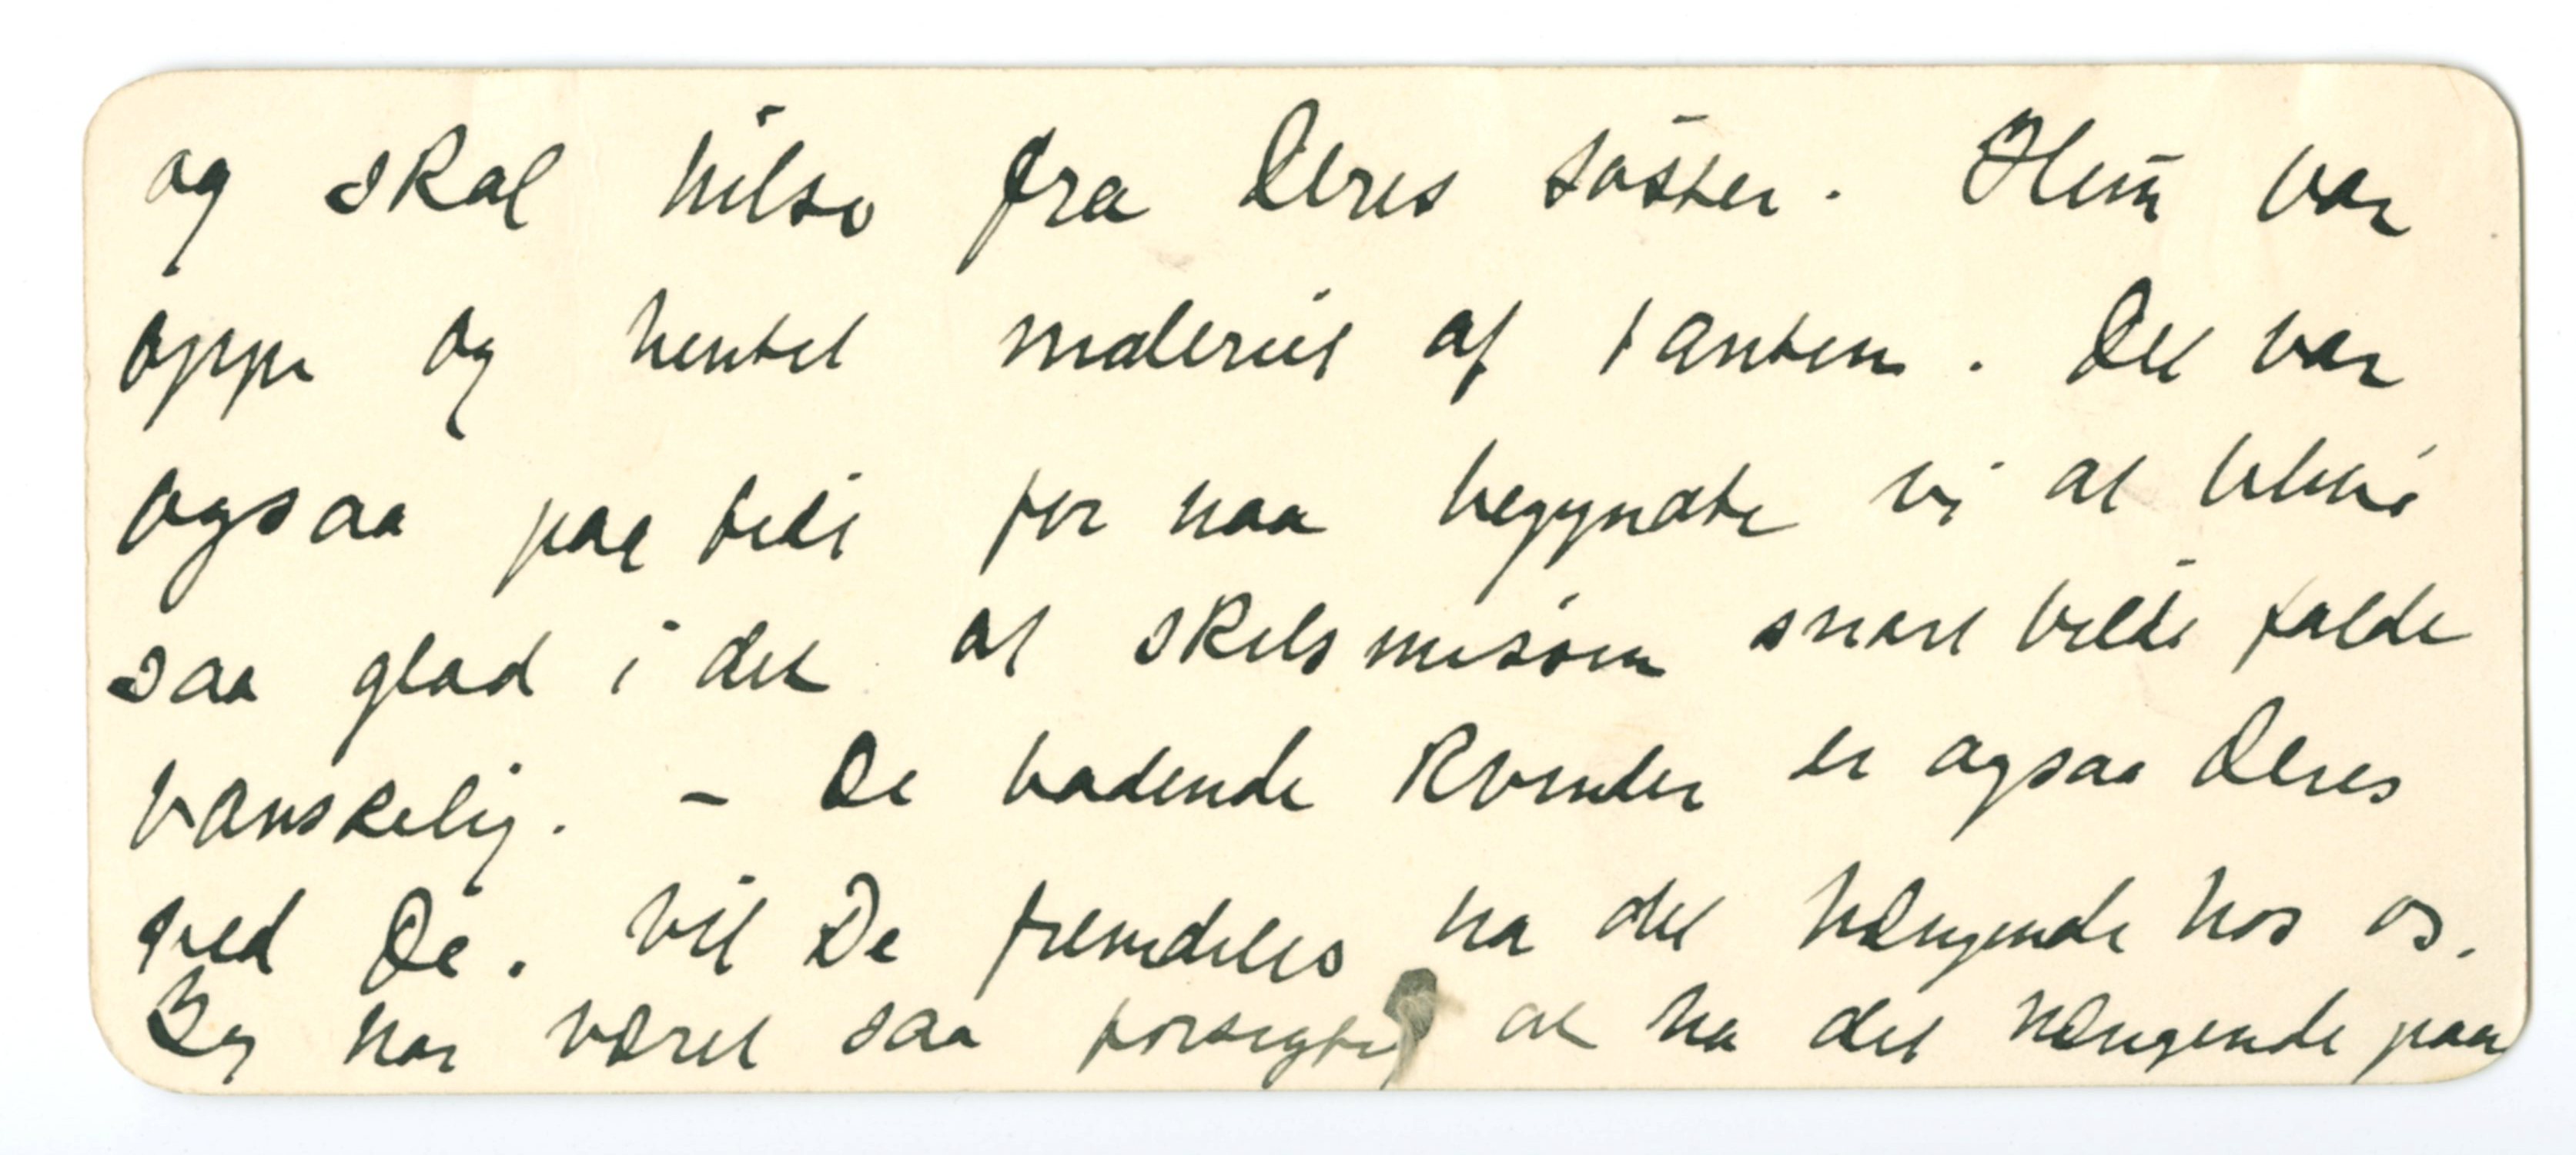 og skal hilse fra Deres søster. Hun var
oppe og hentet maleriet af tanten. Det var
ogsaa paa tide for naa begyndte vi at blive
saa glad i det at skilsmissen snart vilde falde
vanskelig. – De badende kvinder er ogsaa Deres
ved De. Vil De fremdeles ha det hængende hos os.
Jeg har været saa forsigtig at ha det hængende paa